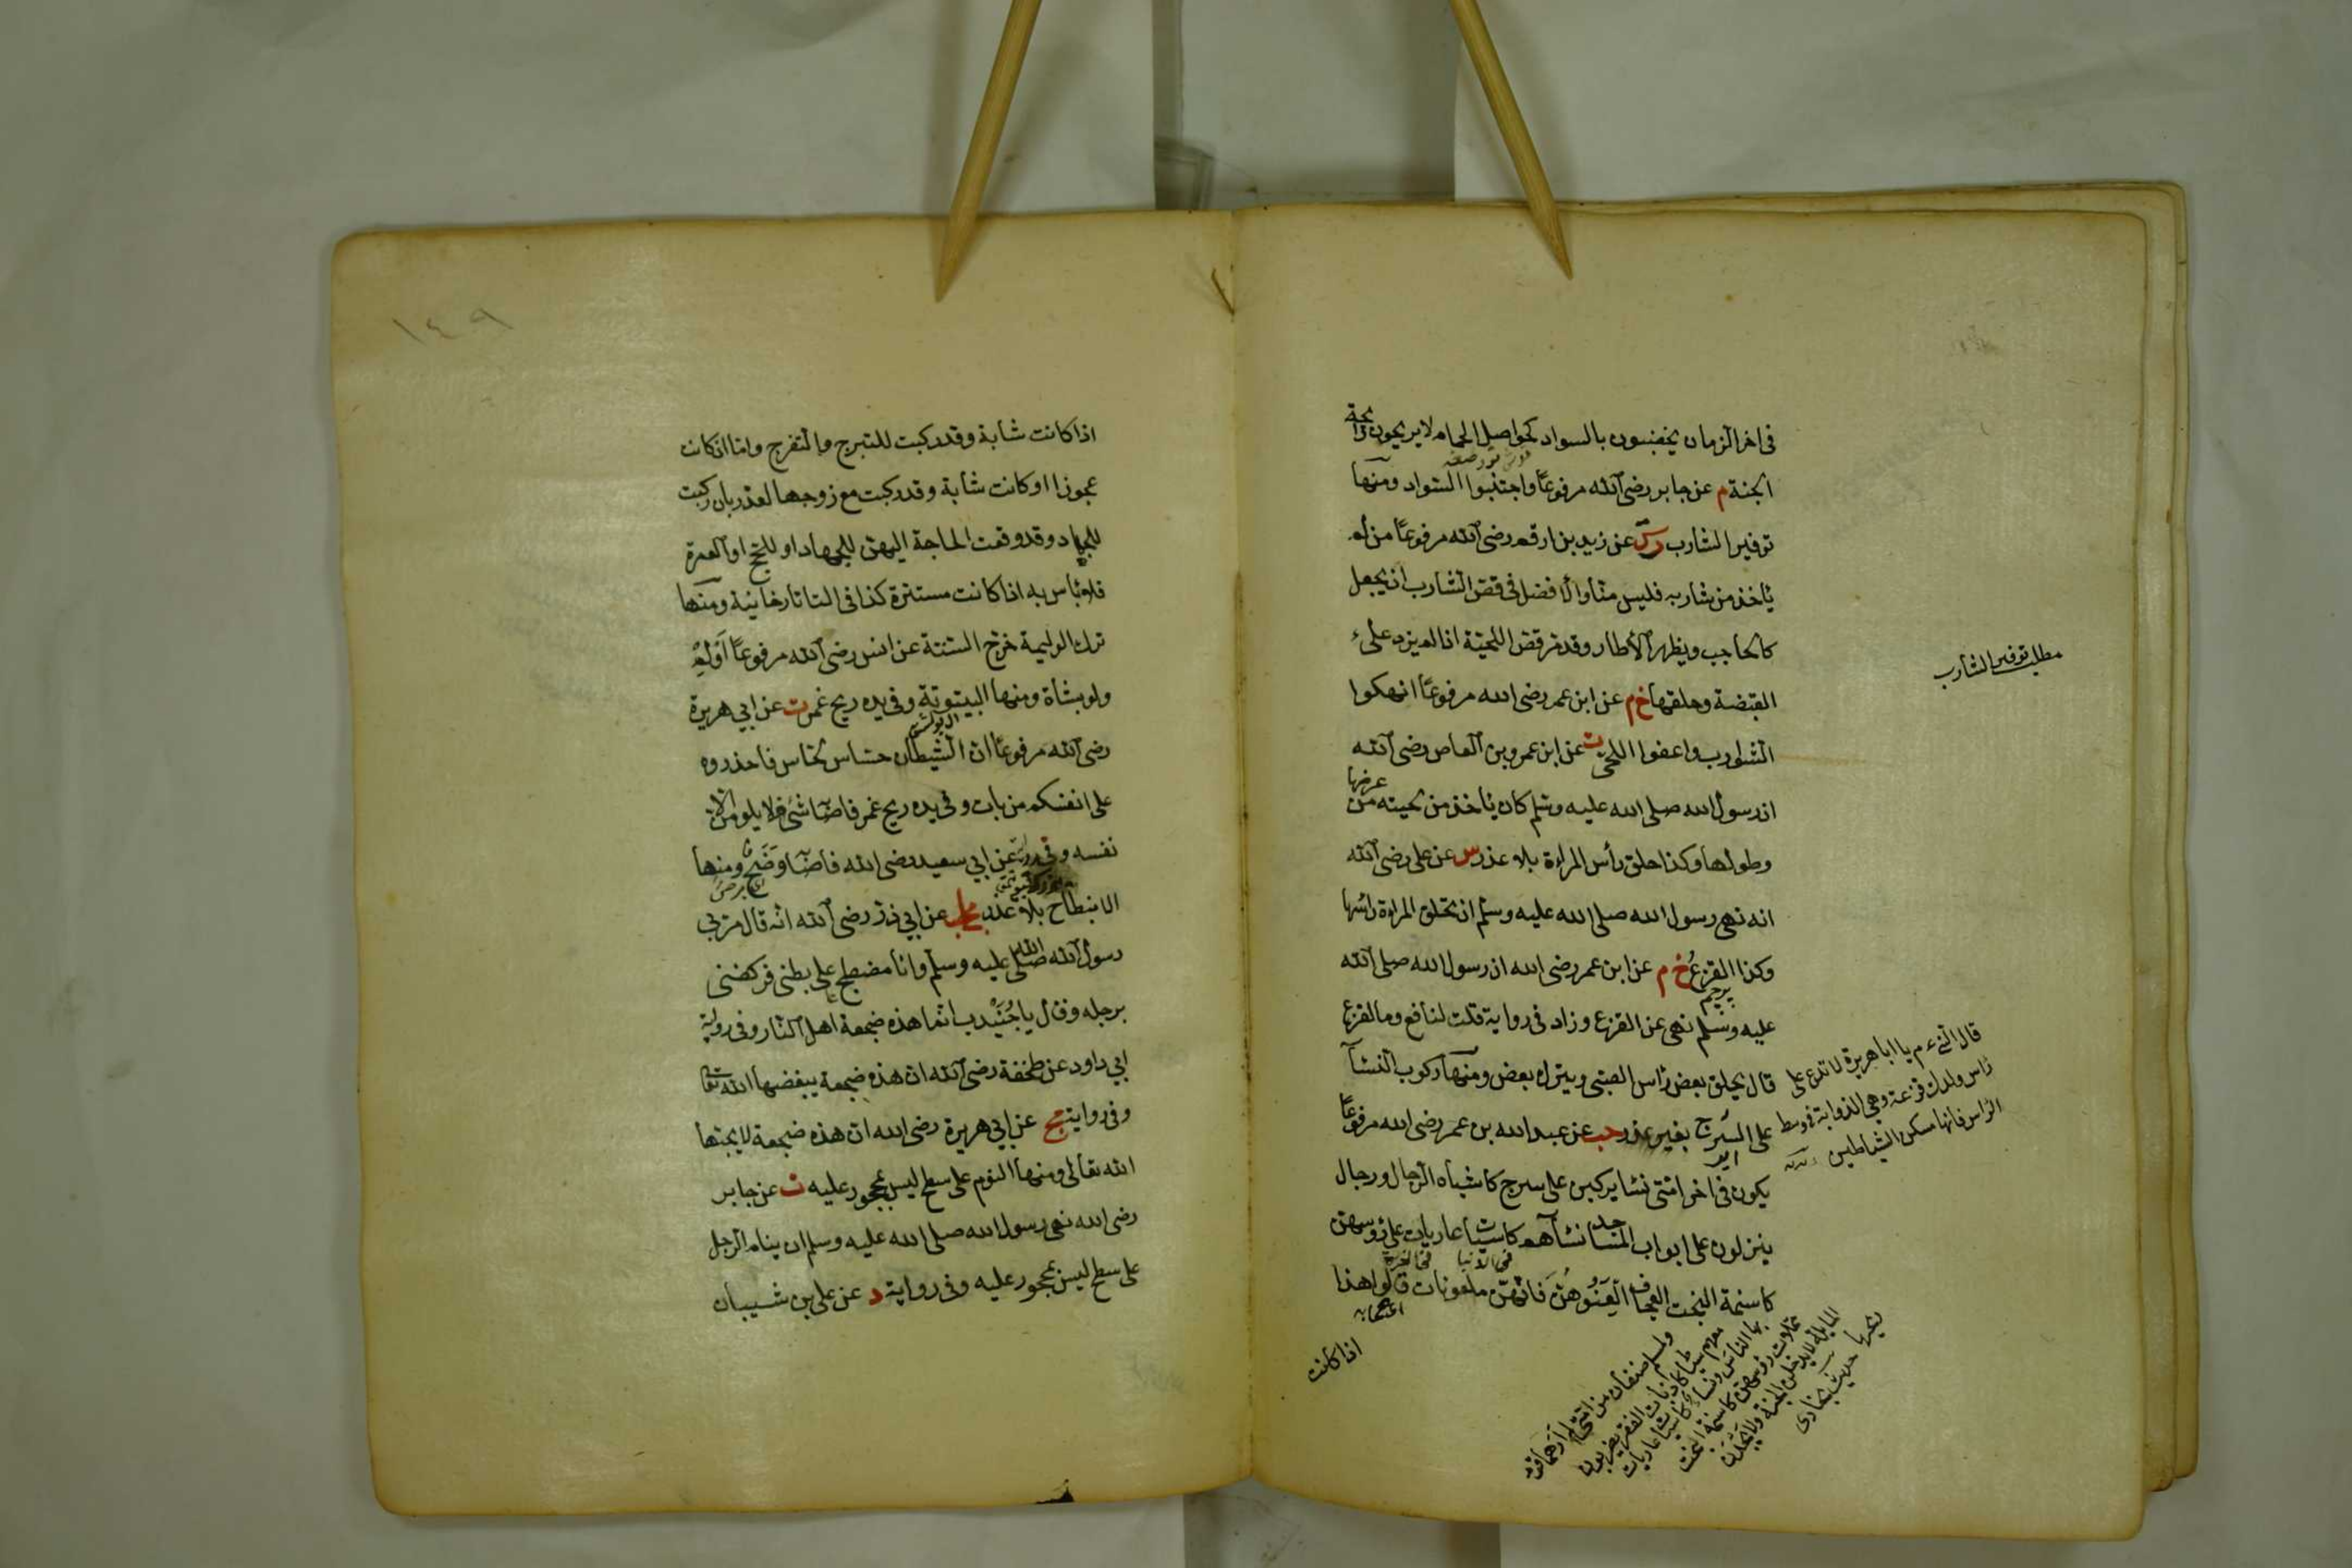 في اخر الزمان يخضبون بالسواد كحواصل الحمام لا يريحون رايحة
الجنة م عن جابر رضى الله مرفوعًا واجتنبوا السواد ومنها
توفير الشارب رس عن زيد بن ارقم رضى الله مرفوعًا من لم
يأخذ من شاربه فليس منا والافضل في قص الشارب ان يجعل
كالحاجب ويظهر الاطار وقد مر قص اللحية اذا لم يزد على
القبضة وحلقها خ م عن ابن عمر رضى الله مرفوعًا انهكوا
الشوارب واعفوا اللحى ت عن ابن عمرو بن العاص رضى الله
ان رسول الله صلى الله عليه وسلم كان يأخذ من لحيته من عرضها
وطولها وكذا حلق رأس المراءة بلا عذر س عن على رضى الله
انه نهى رسول الله صلى الله عليه وسلم ان تحلق المراءة رأسها
وكذا القزع خ م عن ابن عمر رضى الله ان رسول الله صلى الله
عليه وسلم نهى عن القزع وزاد في رواية قلت لنافع وما القزع
قال يحلق بعض رأس الصبى ويترك بعض ومنها ركوب النساء
على السرج بغير عذر حب عن عبد الله بن عمر رضى الله مرفوعًا
يكون في اخر امتى نسا يركبن على سرج كاشباه الرجال ورجال
ينزلون على ابواب المساجد نساهم كاسيات عاريات على رؤسهن
في الدنيا
كاسنمة البخت العجاف العنوهن فانهن ملعونات قالوا هذا
اذا كانت
مطلب توفير الشارب
يا ابا هريرة لا تدع على
رأس ولدك قزعة وهي الذوابة في وسط
الرأس فانها مسكن الشياطين
ولمسلم صنفان من امتى لم ارهما قوم
معهم سياط كاذناب البقر يضربون
بها الناس ونساء كاسيات عاريات
مميلات رؤسهن كاسنمة البخت
المايلة لا يدخلن الجنة ولا يجدن
ريحها
١٤٩
اذا كانت شابة وقد ركبت للتبرج والتفرج واما ان كانت
عجوزا او كانت شابة وقد ركبت مع زوجها لعذر بان ركبت
للجهاد وقد وقعت الحاجة اليهن للجهاد او للحج او العمرة
فلا بأس به اذا كانت مستترة كذا في التاتارخانية ومنها
ترك الوليمة خرج الستة عن انس رضى الله مرفوعًا اَوْلِمْ
ولو بشاة ومنها البيتوتة وفي يده ريح غمر ت عن ابي هريرة
رضى الله مرفوعًا ان الشيطان حساس لحاس فاحذروه
على انفسكم من بات وفي يده ريح غمر فاصابه شئ فلا يلومن الا
نفسه وفي رواية عن ابي سعيد رضى الله فاصابه وَضَحٌ ومنها
اي برص
الانبطاح بلا عذر مج عن ابي ذر رضى الله انه قال مر بي
رسول الله صلى الله عليه وسلم وانا مضطجع على بطنى فركضنى
برجله وقال يا جُنَيْدب انما هذه ضجعة اهل النار وفي رواية
ابي داود عن طخفة رضى الله ان هذه ضجعة يبغضها الله تعا
وفي رواية مج عن ابي هريرة رضى الله ان هذه ضجعة لا يحبها
الله تعالى ومنها النوم على سطح ليس بمحجور عليه ت عن جابر
رضى الله نهى رسول الله صلى الله عليه وسلم ان ينام الرجل
على سطح ليس بمحجور عليه وفي رواية د عن على بن شيبان